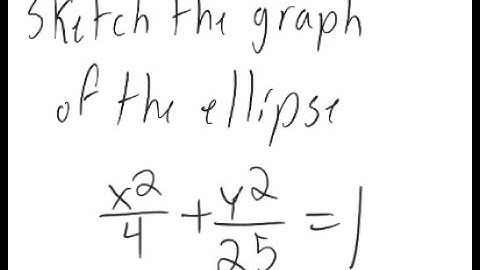 Sketch the graph
of the ellipse
x²/4 + y²/25 = 1